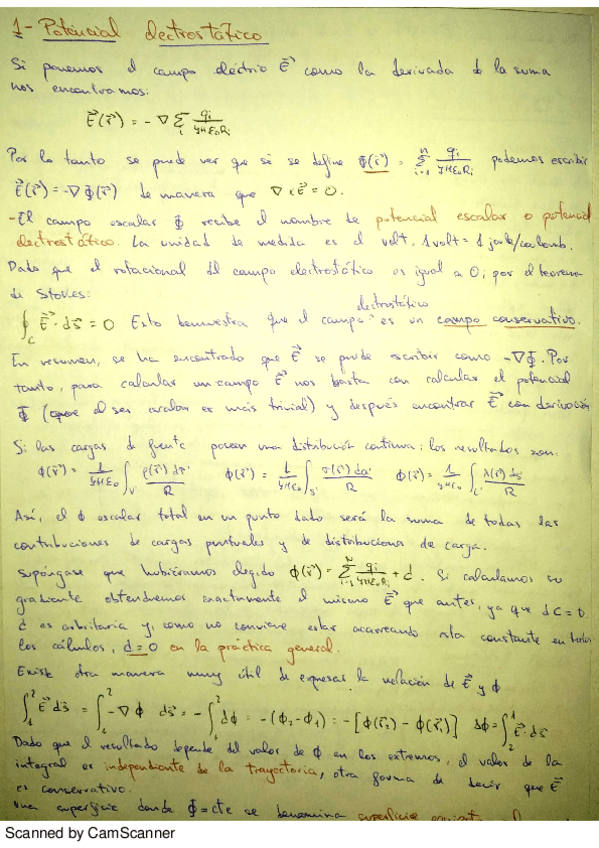 1- Potencial electrostático
Si ponemos el campo eléctrico E⃗ como la derivada de la suma
nos encontramos:
E⃗(r⃗) = -∇ Σ_i q_i/4πε₀R_i
Por lo tanto se puede ver que si se define Φ(r⃗) = Σ_{i=1}^{N} q_i/4πε₀R_i podemos escribir
E⃗(r⃗) = -∇Φ(r⃗) de manera que ∇×E⃗ = 0.
-El campo escalar Φ recibe el nombre de potencial escalar o potencial
electrostático. La unidad de medida es el volt. 1 volt = 1 joule/coulomb.
Dado que el rotacional del campo electrostático es igual a 0, por el teorema
de Stokes:
∮_C E⃗·ds⃗ = 0 Esto demuestra que el campo electrostático es un campo conservativo.
En resumen, se ha encontrado que E⃗ se puede escribir como -∇Φ. Por
tanto, para calcular un campo E⃗ nos basta con calcular el potencial
Φ (que al ser escalar es más trivial) y después encontrar E⃗ con derivación
Si las cargas de fuente poseen una distribución continua, los resultados son:
ϕ(r⃗) = 1/4πε₀ ∫_V' ρ(r⃗')dτ'/R ϕ(r⃗) = 1/4πε₀ ∫_S' σ(r⃗')da'/R ϕ(r⃗) = 1/4πε₀ ∫_C' λ(r⃗')ds'/R
Así, el ϕ escalar total en un punto dado será la suma de todas las
contribuciones de cargas puntuales y de distribuciones de carga.
Supóngase que hubiéramos elegido ϕ(r⃗) = Σ_{i=1}^{N} q_i/4πε₀R_i + C. Si calculamos su
gradiente obtendremos exactamente el mismo E⃗ que antes, ya que dC=0
C es arbitraria y, como no conviene estar acarreando esta constante en todos
los cálculos, C=0 en la práctica general.
Existe otra manera muy útil de expresar la relación de E⃗ y ϕ
∫₁² E⃗ ds⃗ = ∫₁² -∇ϕ ds⃗ = -∫₁² dϕ = -(ϕ₂-ϕ₁) = -[ϕ(r⃗₂) - ϕ(r⃗₁)] Δϕ = ∫₂¹ E⃗·ds⃗
Dado que el resultado depende del valor de ϕ en los extremos, el valor de la
integral es independiente de la trayectoria, otra forma de decir que E⃗
es conservativo.
Una superficie donde Φ=cte se denomina superficie
Scanned by CamScanner